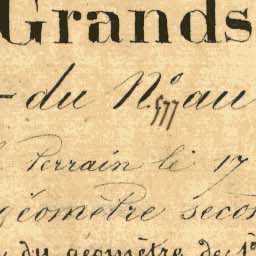 Grands
- du Nº au
577
terrain le 17
géomètre secon
du géomètre de 1º